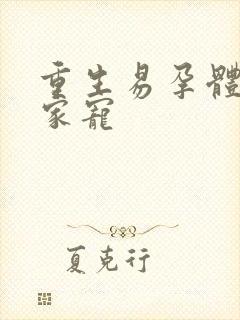 重生易孕體
家寵
夏克行